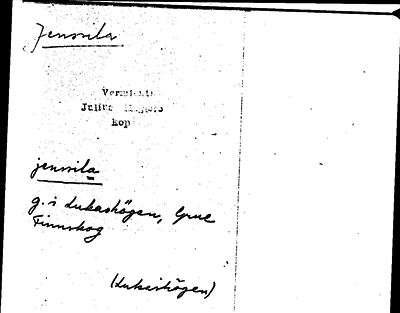 Jenssila
Vermlands
Julius
kop
jenssila
g. i Lukashögen, Grue
Finnskog
(Lukashögen)